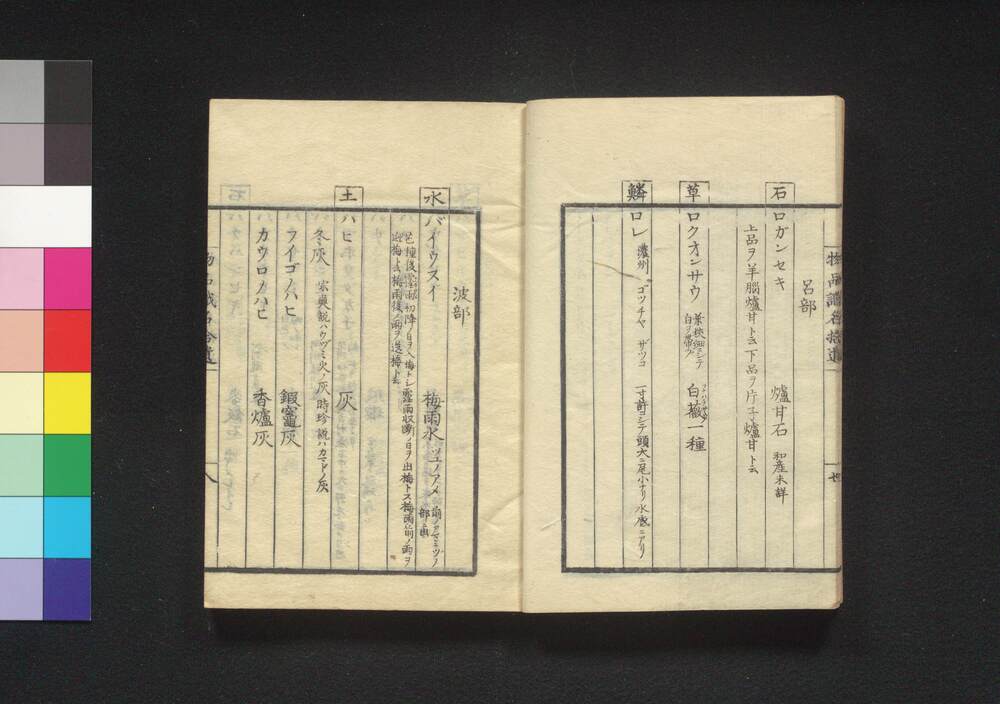 物品識名拾遺
呂部
石 ロガンセキ 爐甘石 和産未詳
上品ヲ羊腦爐甘ト云下品ヲ片子爐甘ト云
草 ロクオンサウ 葉狹細ニシテ白ヲ帶フ 白蘞一種
鱗 ロレ 濃州 ゴツチヤ ザツコ 一寸許ニシテ頭大ニ尾小ナリ水底ニアリ
波部
水 バイウスイ 梅雨水 ツユノアメ
芒種後逢壬初降ノ日ヲ入梅トシ霖雨収ル日ヲ出梅トス梅雨前ノ雨ヲ迎梅ト云梅雨後ノ雨ヲ送梅ト云
土 ハヒ 灰
冬灰 宗奭説ハウヅミ火ノ灰時珍説ハカマドノ灰
フイゴノハヒ 鍜竈灰
カウロノハヒ 香爐灰
物品識名拾遺 八